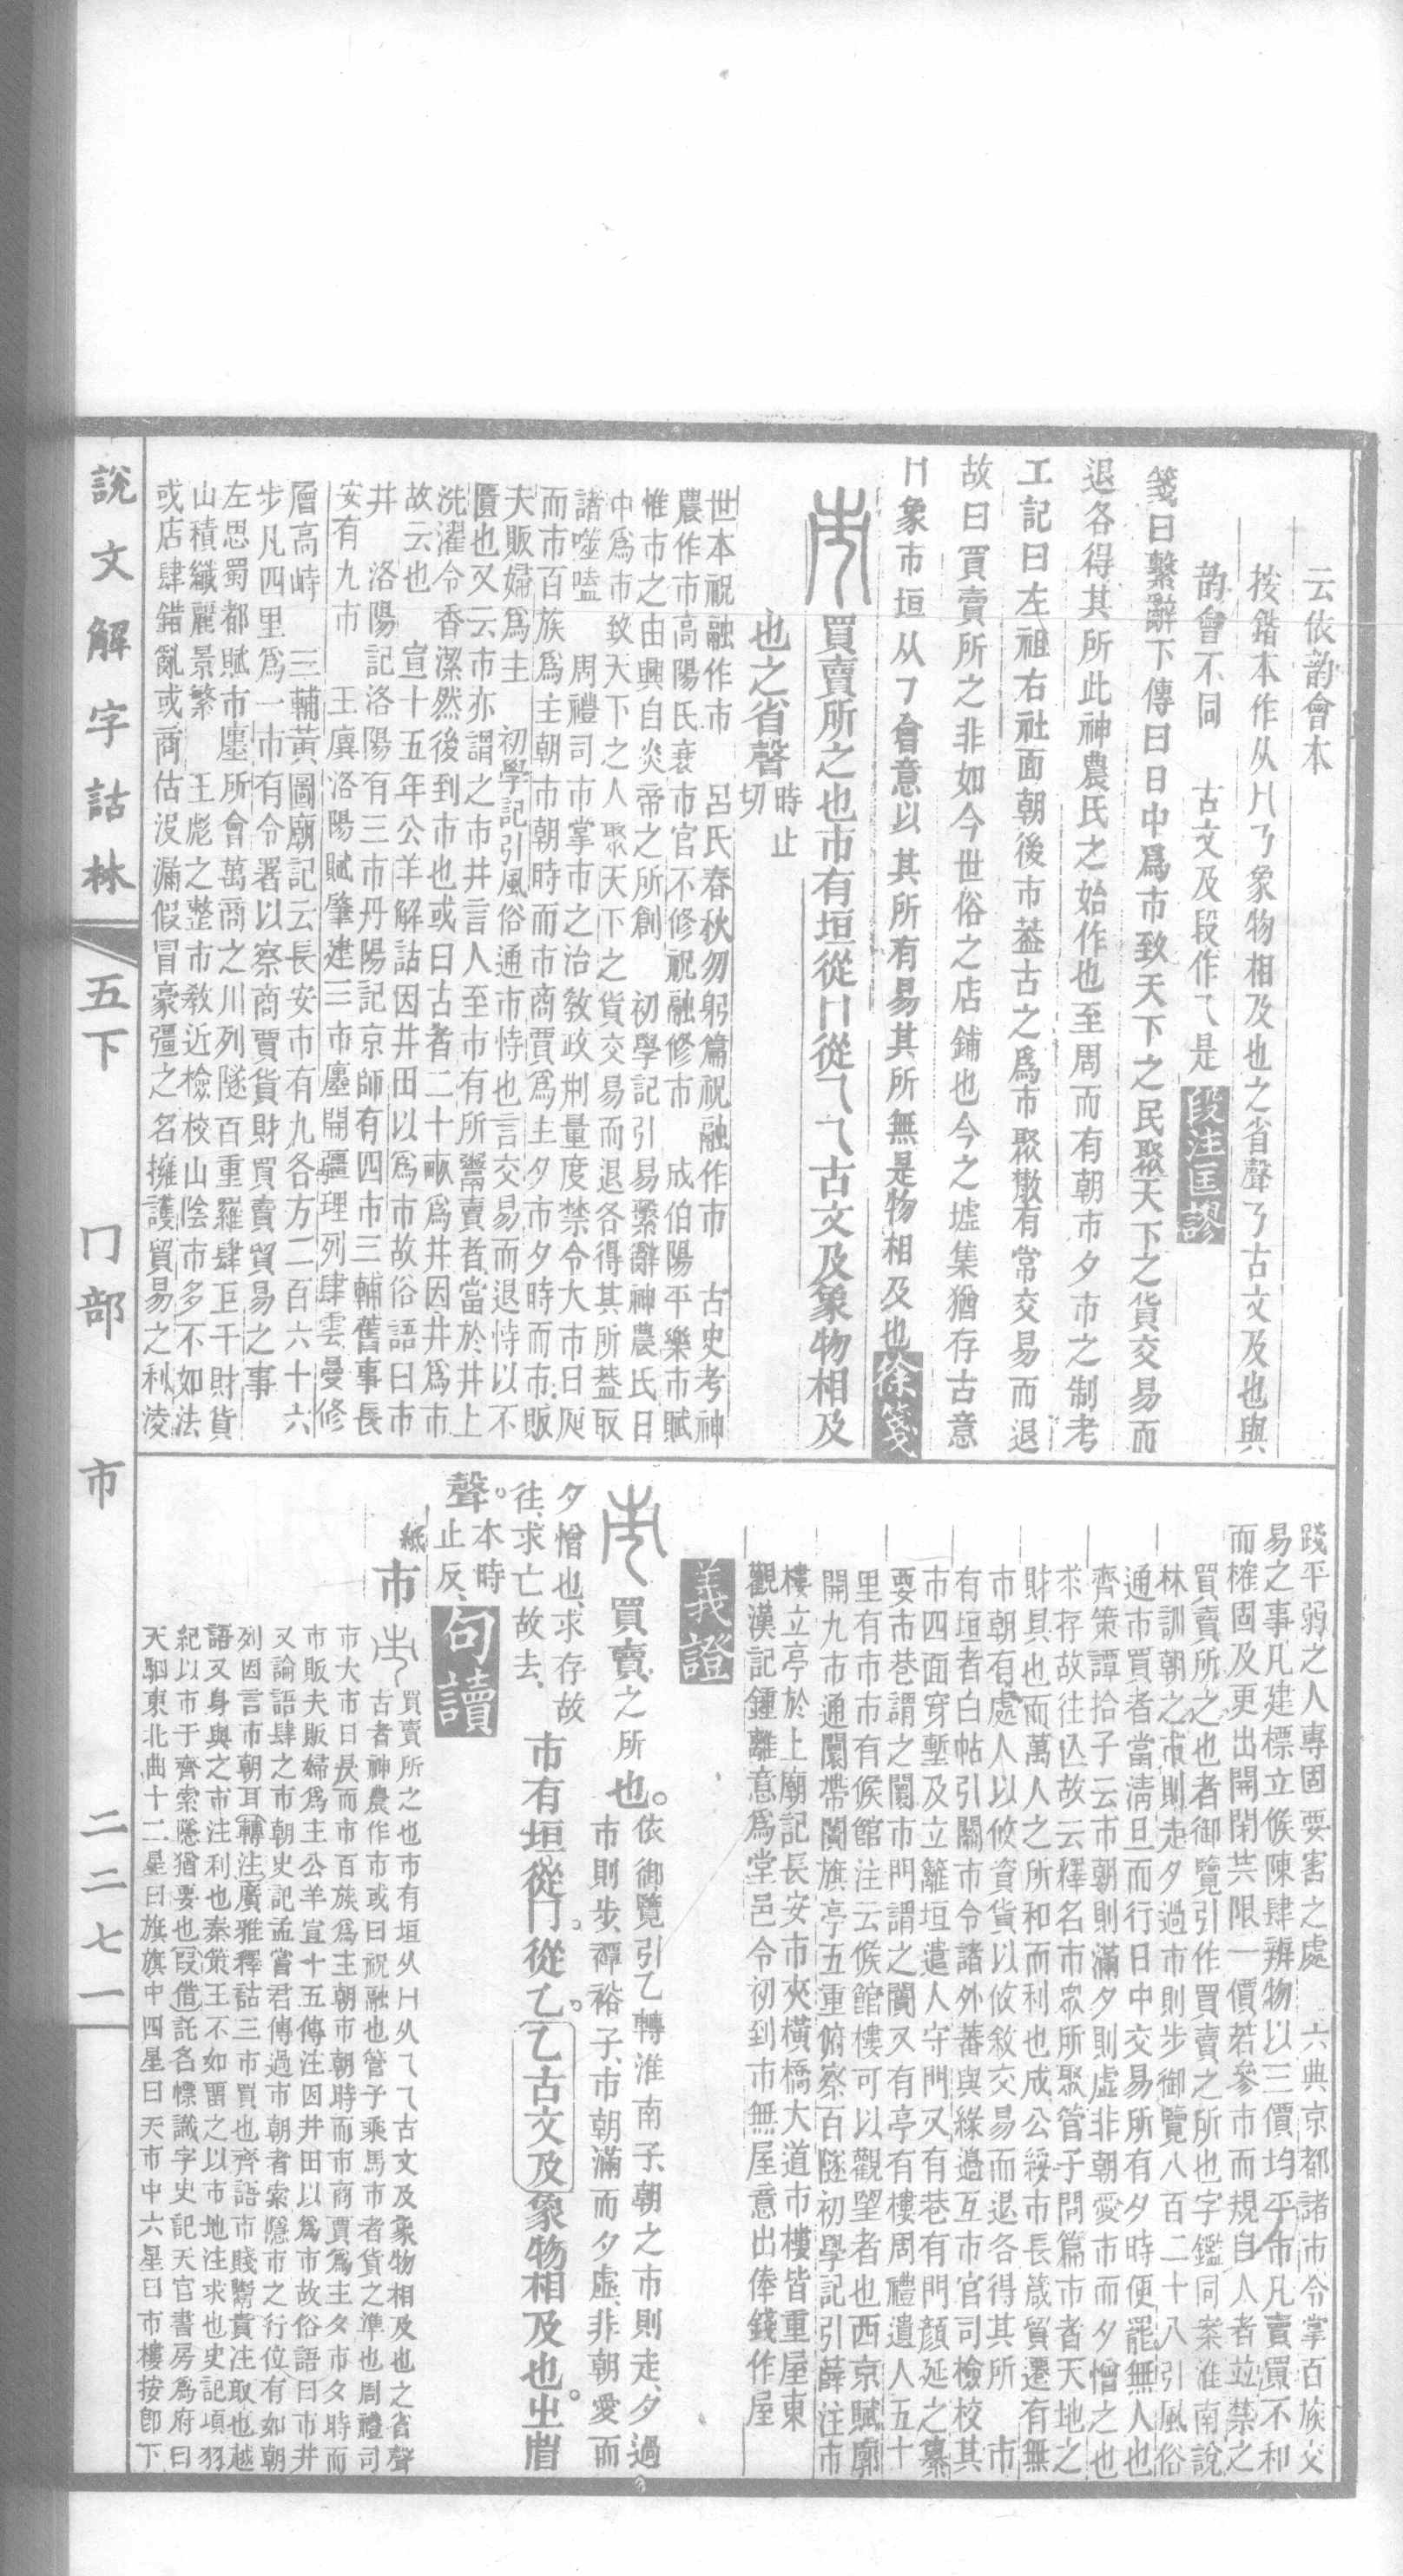 云依韵會本
按鍇本作从𠘧㇋象物相及也之省聲㇋古文及也與
韵會不同 古文及段作乁是 段注匡謬
箋曰繫辭下傳曰日中爲市致天下之民聚天下之貨交易而
退各得其所此神農氏之始作也至周而有朝市夕市之制考
工記曰左祖右社面朝後市葢古之爲市聚散有常交易而退
故曰買賣所之非如今世俗之店鋪也今之墟集猶存古意
冂象市垣从㇇會意以其所有易其所無是物相及也 徐箋
買賣所之也市有垣從冂從乁乁古文及象物相及
也之省聲 時止
切
世本祝融作市 呂氏春秋勿躬篇祝融作市 古史考神
農作市高陽氏衰市官不修祝融修市 成伯陽平樂市賦
惟市之由興自炎帝之所創 初學記引易繫辭神農氏日
中爲市致天下之人聚天下之貨交易而退各得其所葢取
諸噬嗑 周禮司市掌市之治教政刑量度禁令大市日昃
而市百族爲主朝市朝時而市商賈爲主夕市夕時而市販
夫販婦爲主 初學記引風俗通市恃也言交易而退恃以不
匱也又云市亦謂之市井言人至市有所鬻賣者當於井上
洗濯令香潔然後到市也或曰古者二十畝爲井因井爲市
故云也 宣十五年公羊解詁因井田以爲市故俗語曰市
井 洛陽記洛陽有三市丹陽記京師有四市三輔舊事長
安有九市 王廙洛陽賦肇建三市廛開疆理列肆雲曼修
層高峙 三輔黃圖廟記云長安市有九各方二百六十六
步凡四里爲一市有令署以察商賈貨財買賣貿易之事
左思蜀都賦市廛所會萬商之川列隧百重羅肆巨千財貨
山積纖麗景繁 王彪之整市教近檢校山陰市多不如法
或店肆錯亂或商估没漏假冒豪彊之名擁護貿易之利凌
踐平弱之人專固要害之處 六典京都諸市令掌百族交
易之事凡建標立候陳肆辨物以三價均平市凡賣買不和
而榷固及更出開閉共限一價若參市而規自入者竝禁之
買賣所之也者御覽引作買賣之所也字鑑同案淮南說
林訓朝之市則走夕過市則步御覽八百二十八引風俗
通市買者當淸旦而行日中交易所有夕時便罷無人也
齊策譚拾子云市朝則滿夕則虛非朝愛市而夕憎之也
求存故往亾故云釋名市眾所聚管子問篇市者天地之
財具也而萬人之所和而利也成公綏市長箴貿遷有無
市朝有處人以攸資貨以攸敘交易而退各得其所 市
有垣者白帖引關市令諸外蕃與緣邊互市官司檢校其
市四面穿塹及立籬垣遣人守門又有巷有門顔延之纂
要市巷謂之闤市門謂之闠又有亭有樓周禮遺人五十
里有市市有候館注云候館樓可以觀望者也西京賦廓
開九市通闤帶闠旗亭五重俯察百隧初學記引薛注市
樓立亭於上廟記長安市夾橫橋大道市樓皆重屋東
觀漢記鍾離意爲堂邑令初到市無屋意出俸錢作屋
義證
買賣之所也。依御覽引乙轉淮南子朝之市則走夕過
市則步譚裕子市朝滿而夕虛非朝愛而
夕憎也求存故
往求亡故去 市有垣從冂。從乁。乁古文及象物相及也。㞢省
聲。本時
止反 句讀
紙 市 買賣所之也市有垣从冂从乁乁古文及象物相及也之省聲
古者神農作市或曰祝融也管子乘馬市者貨之準也周禮司
市大市日昃而市百族爲主朝市朝時而市商賈爲主夕市夕時而
市販夫販婦爲主公羊宣十五傳注因井田以爲市故俗語曰市井
又論語肆之市朝史記孟嘗君傳過市朝者索隱市之行位有如朝
列因言市朝耳轉注廣雅釋詁三市買也齊語市賤鬻貴注取也越
語又身與之市注利也秦策王不如畱之以市地注求也史記項羽
紀以市于齊索隱猶要也假借託名幖識字史記天官書房爲府曰
天駟東北曲十二星曰旗旗中四星曰天市中六星曰市樓按卽下
說文解字詁林 五下 冂部 市 二二七一